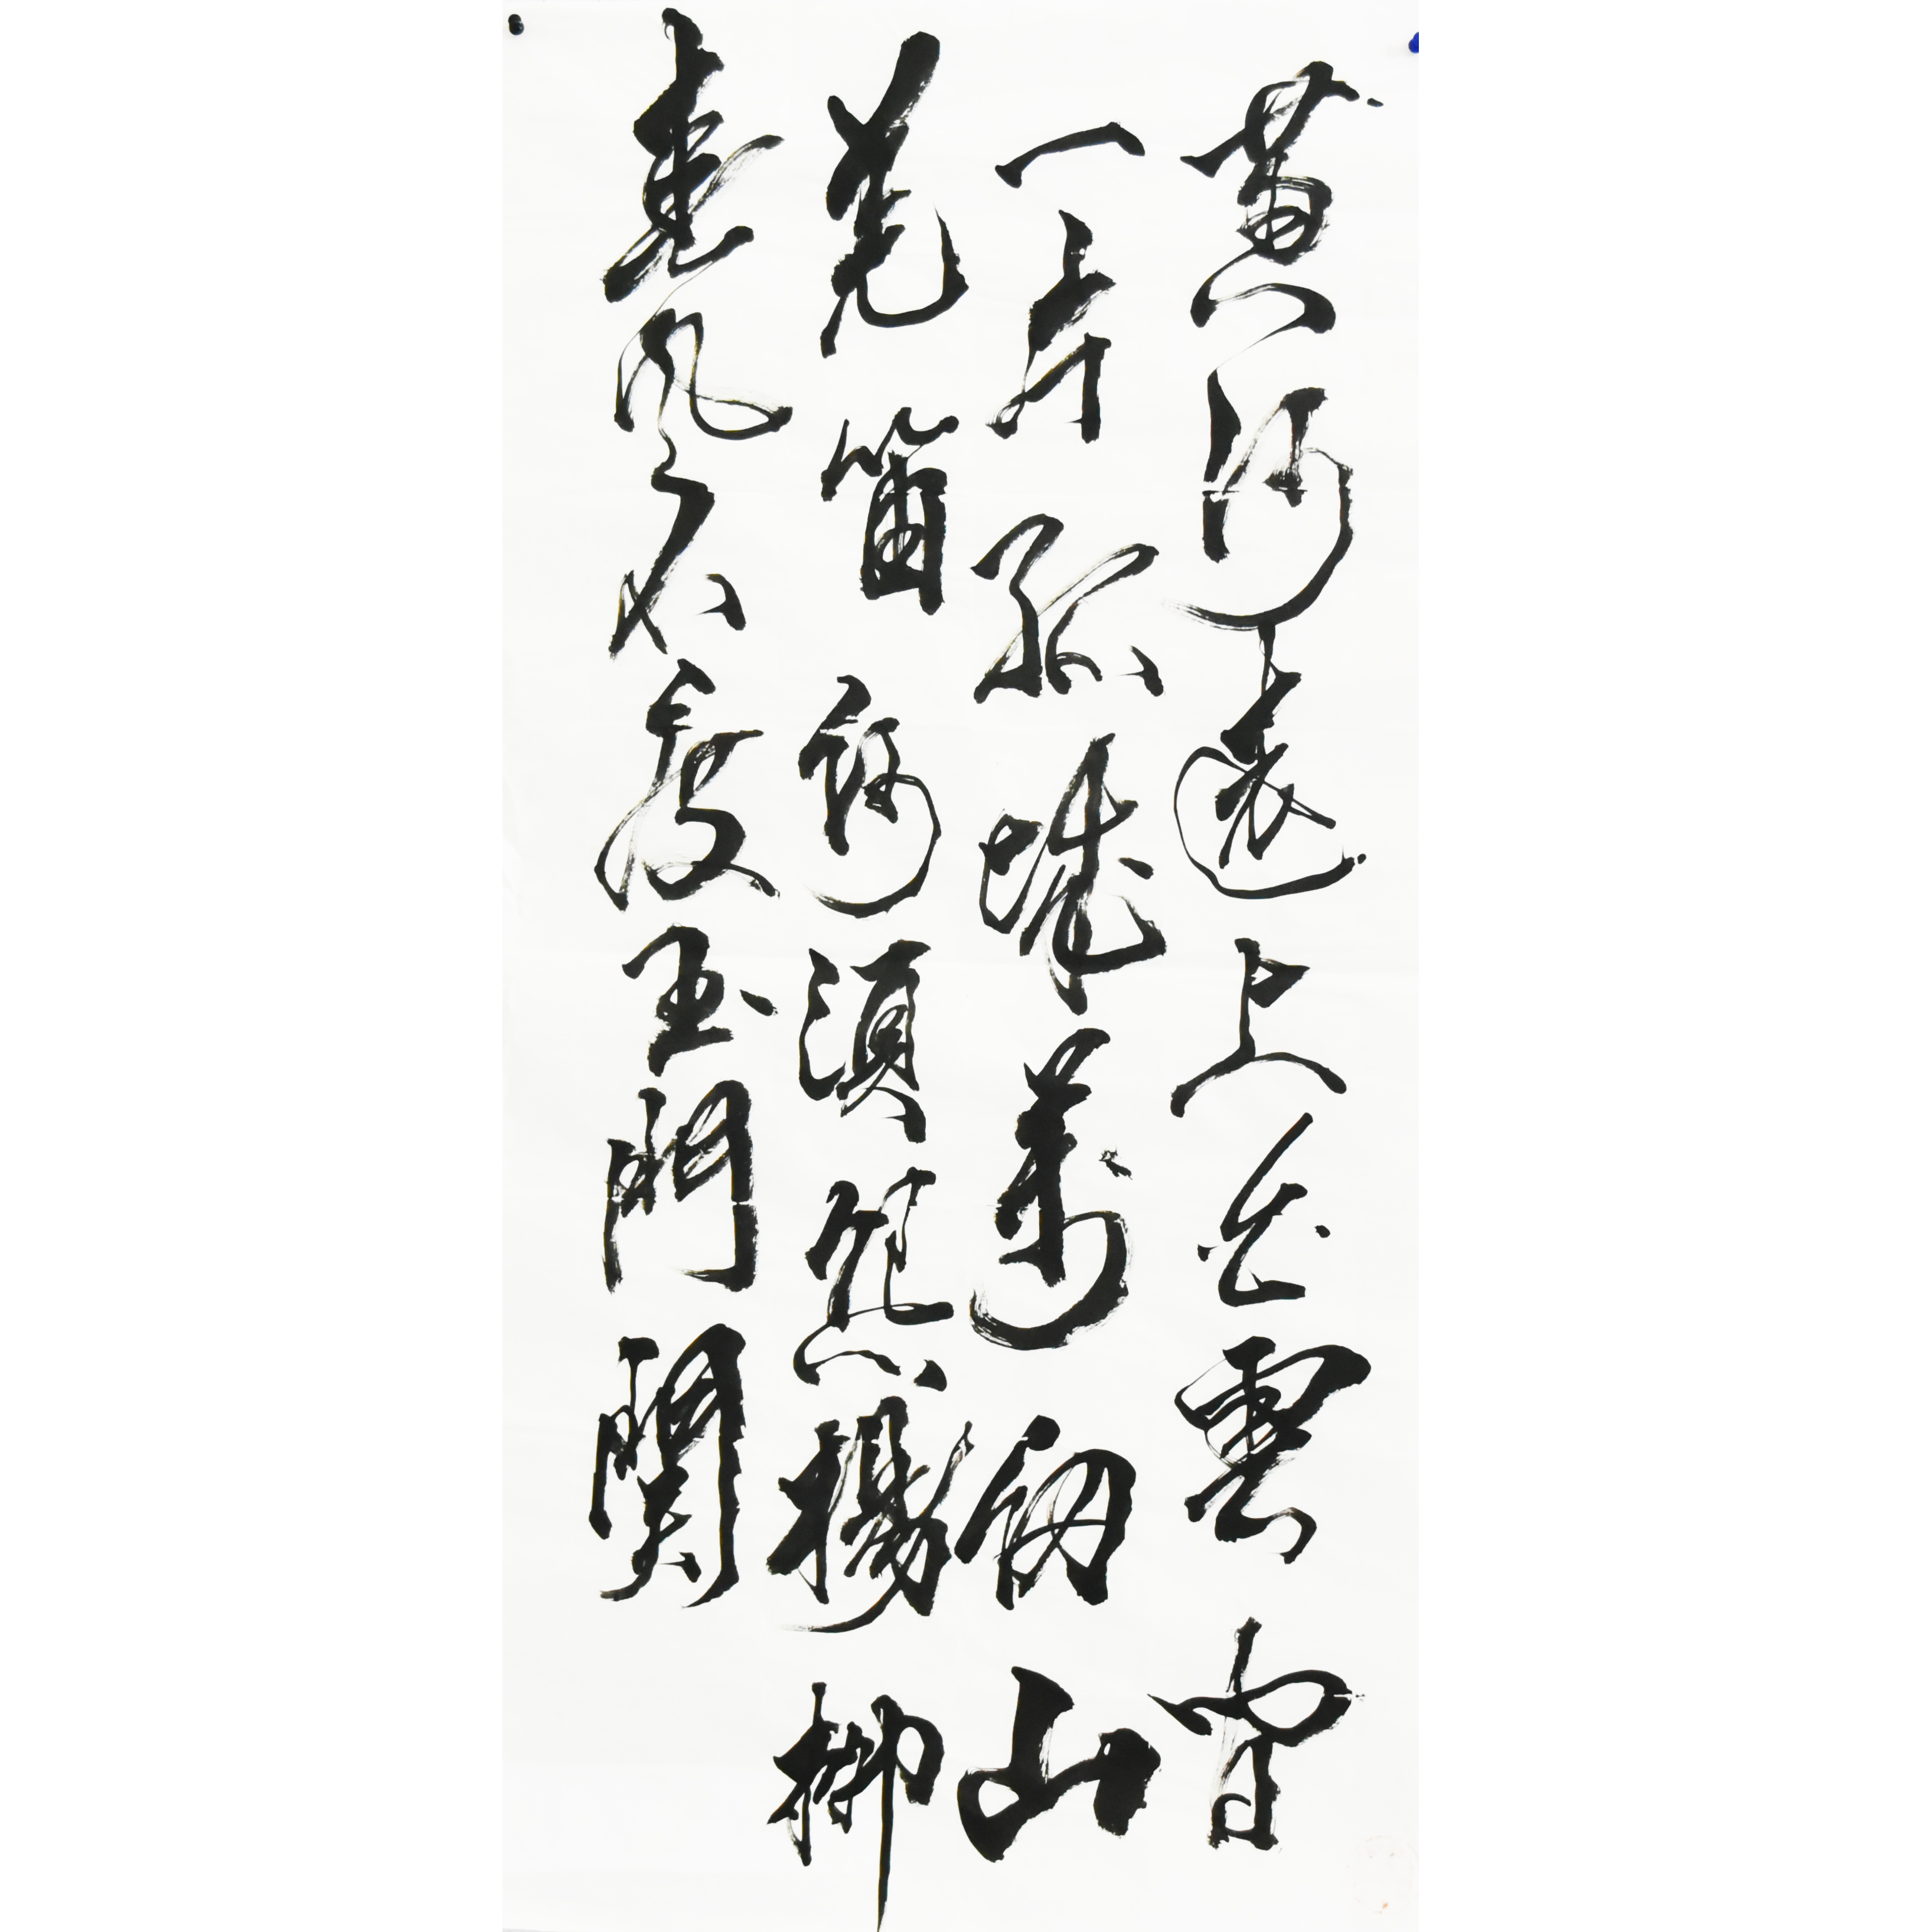 黃河遠上白雲間
一片孤城萬仞山
羌笛何須怨楊柳
春風不度玉門關